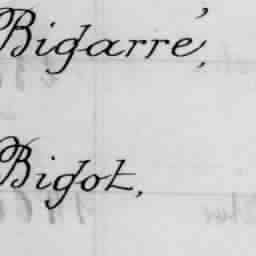 Bigarré,
Bigot,